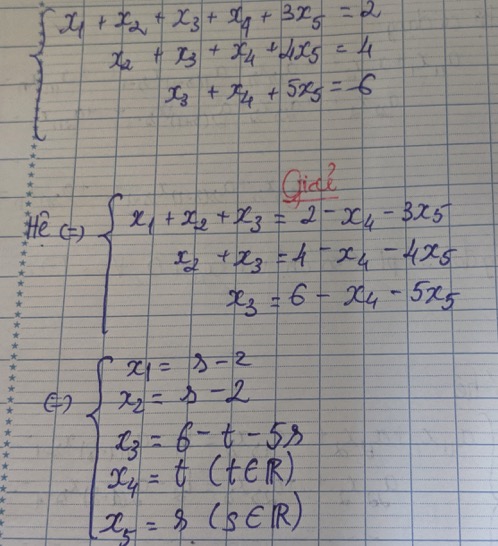 x₁ + x₂ + x₃ + x₄ + 3x₅ = 2
x₂ + x₃ + x₄ + 4x₅ = 4
x₃ + x₄ + 5x₅ = 6
Giải
Hê (=) x₁ + x₂ + x₃ = 2 - x₄ - 3x₅
x₂ + x₃ = 4 - x₄ - 4x₅
x₃ = 6 - x₄ - 5x₅
(=) x₁ = s - 2
x₂ = s - 2
x₃ = 6 - t - 5s
x₄ = t (t ∈ ℝ)
x₅ = s (s ∈ ℝ)